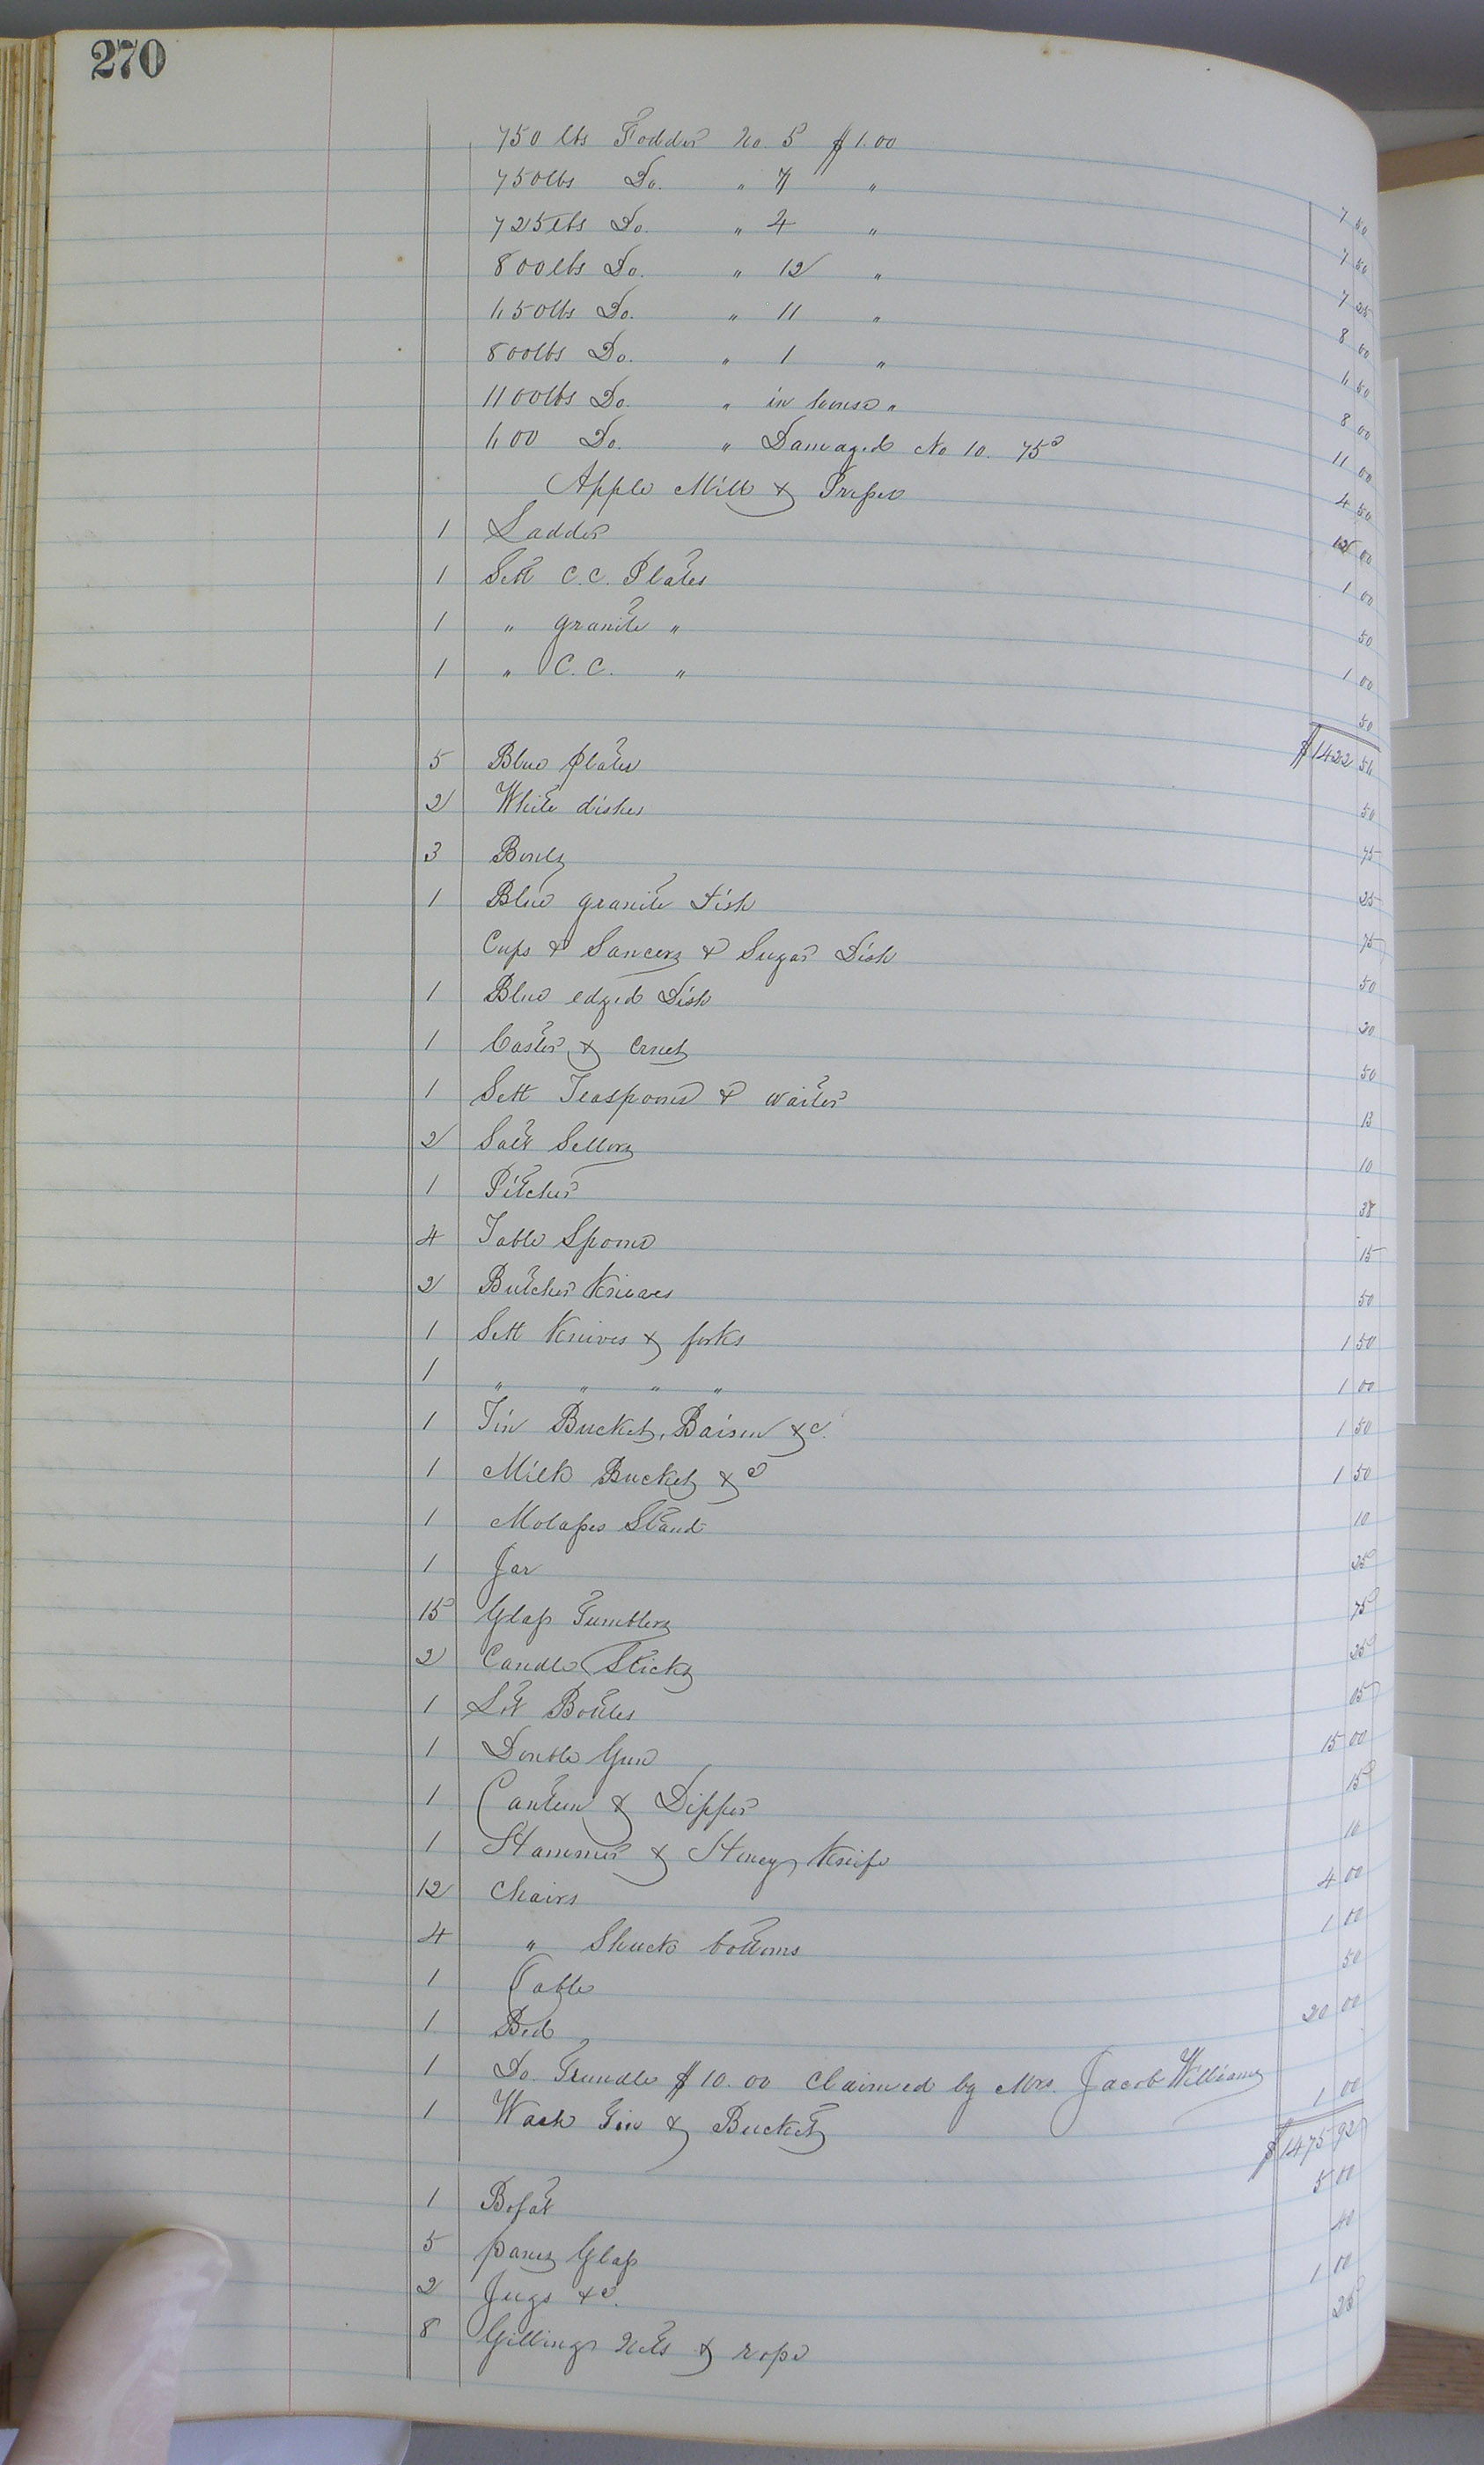 270
750 lbs Fodder No. 5 $1.00 7 50
750lbs Do. " 7 " 7 50
725lbs Do. " 4 " 7 25
800lbs Do. " 12 " 8 00
650lbs Do. " 11 " 6 50
800lbs Do. " 1 " 8 00
1100lbs Do. " in house " 11 00
600 Do. " Damaged No 10. 75 4 50
Apple Mill & Presser 12 00
1 Ladder 1 00
1 Sett C.C. Plates 50
1 " granite " 1 00
1 " C.C. " 50
$1422 56
5 Blue plates 50
2 White dishes 75
3 Bowls 25
1 Blue granite Dish 75
Cups & Saucers & Sugar Dish 50
1 Blue edged Dish 20
1 Caster & Cruets 50
1 Sett Teaspoons & waiter 13
2 Salt Sellers 10
1 Pitcher 38
4 Table Spoons 15
2 Butcher Knieves 50
1 Sett Knives & forks 1 50
1 " " " " 1 00
1 Tin Bucket, Baisen &c. 1 50
1 Milk Bucket &c 1 50
1 Molasses Stand 10
1 Jar 25
15 Glass Tumblers 75
2 Candle Sticks 25
1 Lot Bottles 05
1 Double Gun 15 00
1 Canteen & Dipper 15
1 Hammer & Honey Knife 10
12 Chairs 4 00
4 " Shuck bottoms 1 00
1 Table 50
1 Bed 20 00
1 Do. Trundle $10.00 Claimed by Mrs. Jacob Williams
1 Wash Tin & Bucket 1 00
$1475 92
1 Bofat 5 00
5 panes Glass 40
2 Jugs &c. 1 00
8 Gillings Nets & rope 25